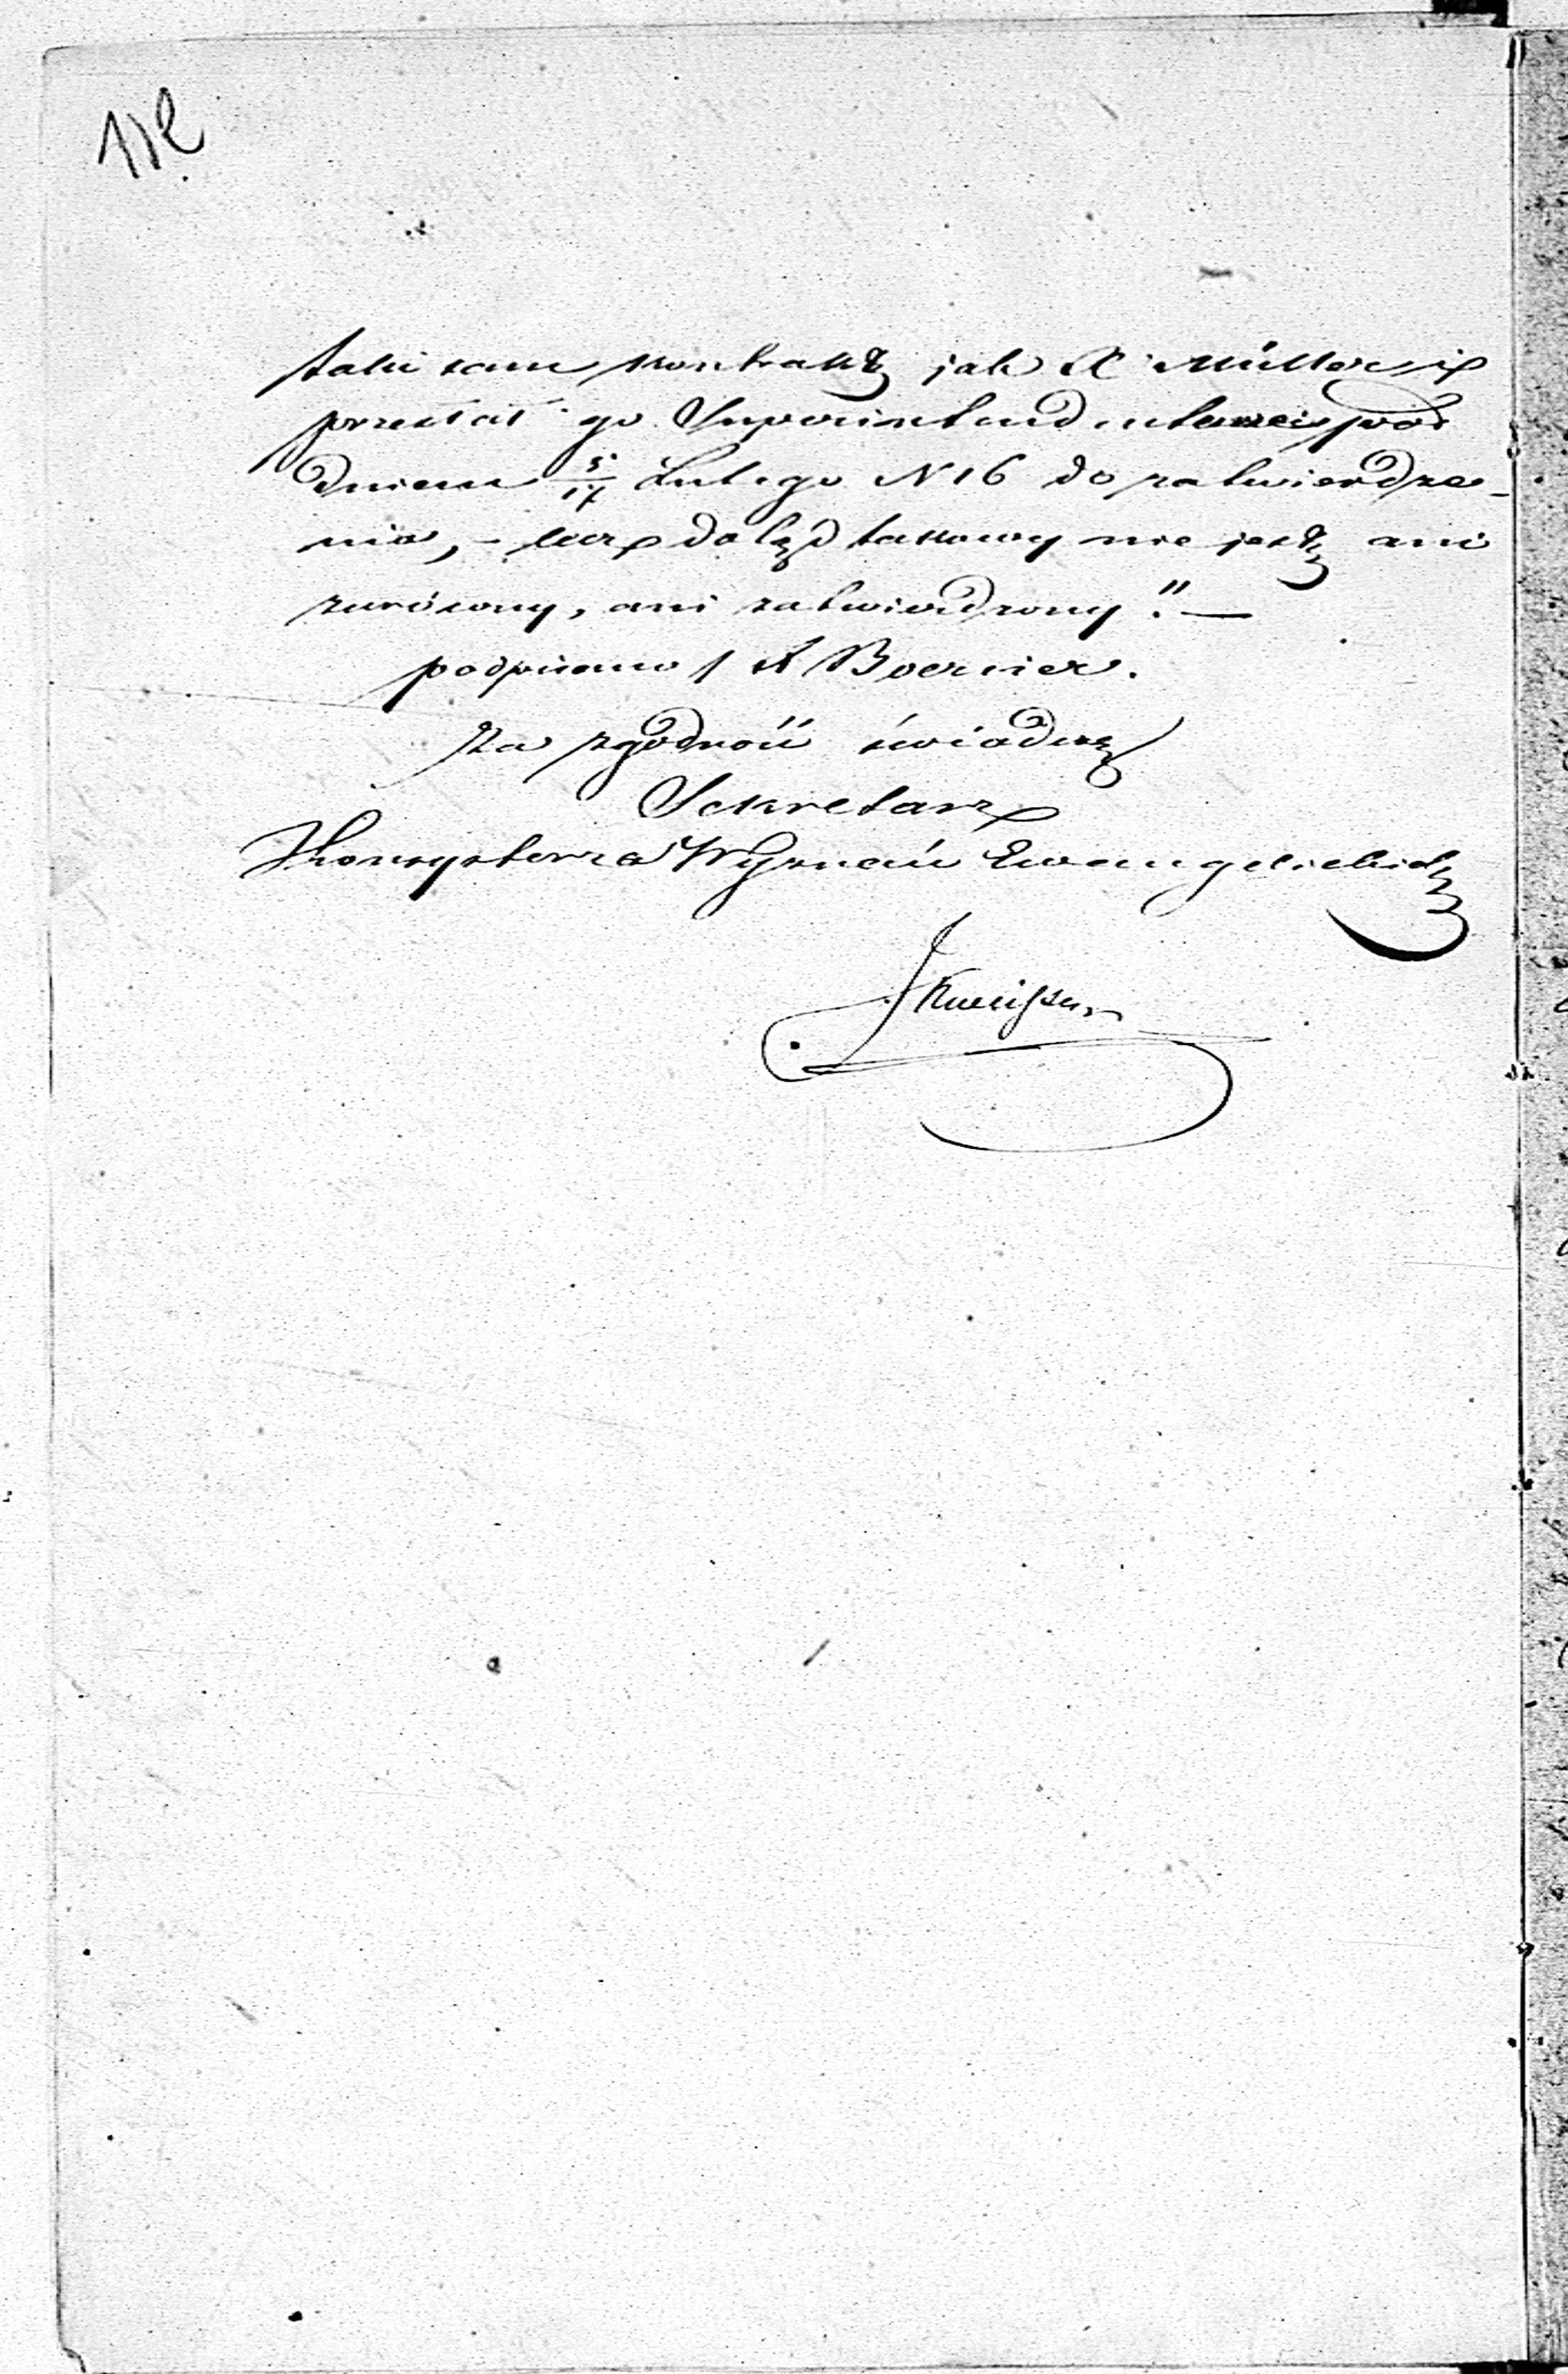 taki sam kontrakt jak X Müller i
przesłał go Superintendentowi pod
dniem 5/17 Lutego N 16 do zatwierdze-
nia, – lecz dotąd takowy nie jest ani
zwrócony, ani zatwierdzony." —
podpisano / X Boerner.
Za zgodność świadczę
Sekretarz
Konsystorza Wyznań Ewangelickich